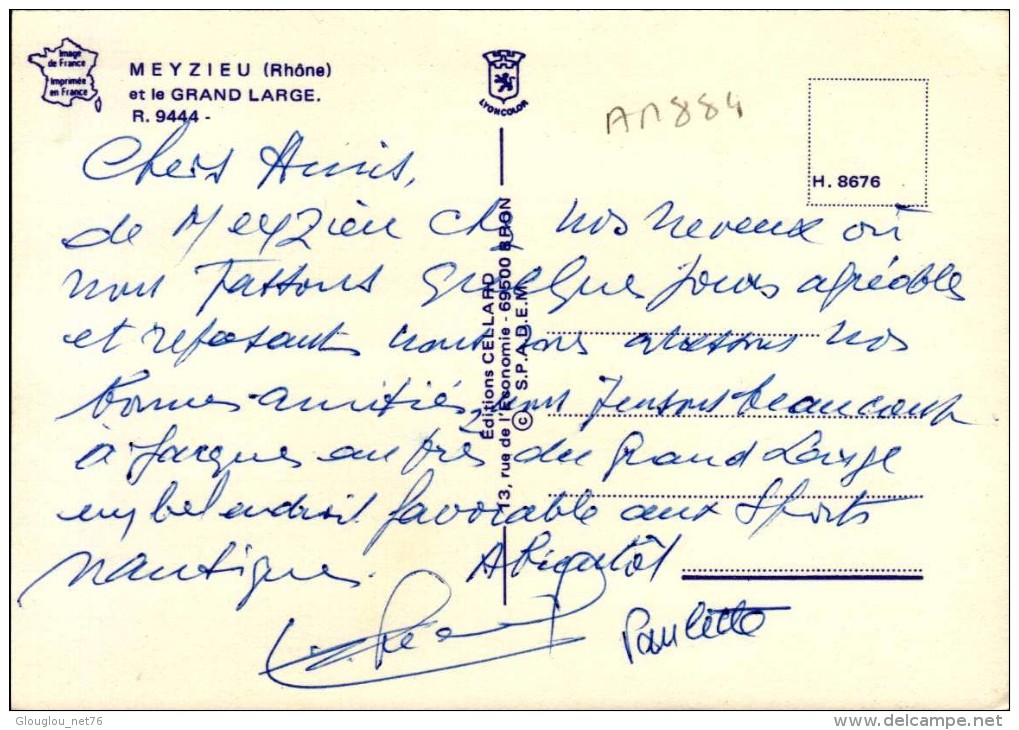 Image
de France
Imprimée
en France
MEYZIEU (Rhône)
et le GRAND LARGE.
R. 9444 -
LYONCOLOR
AM884
H. 8676
Éditions CELLARD
13, rue de l'Economie - 69500 BRON
© S.P.A.D.E.M.
Chers Amis,
de Meyzieu chez nos neveux où
nous passons quelques jours agréables
et reposants nous vous adressons nos
bonnes amitiés, nous pensons beaucoup
à Jacques au près du Grand Large
un bel endroit favorable aux Sports
nautiques. A Bientôt
Paulette
Glouglou_net76
delcampe.net